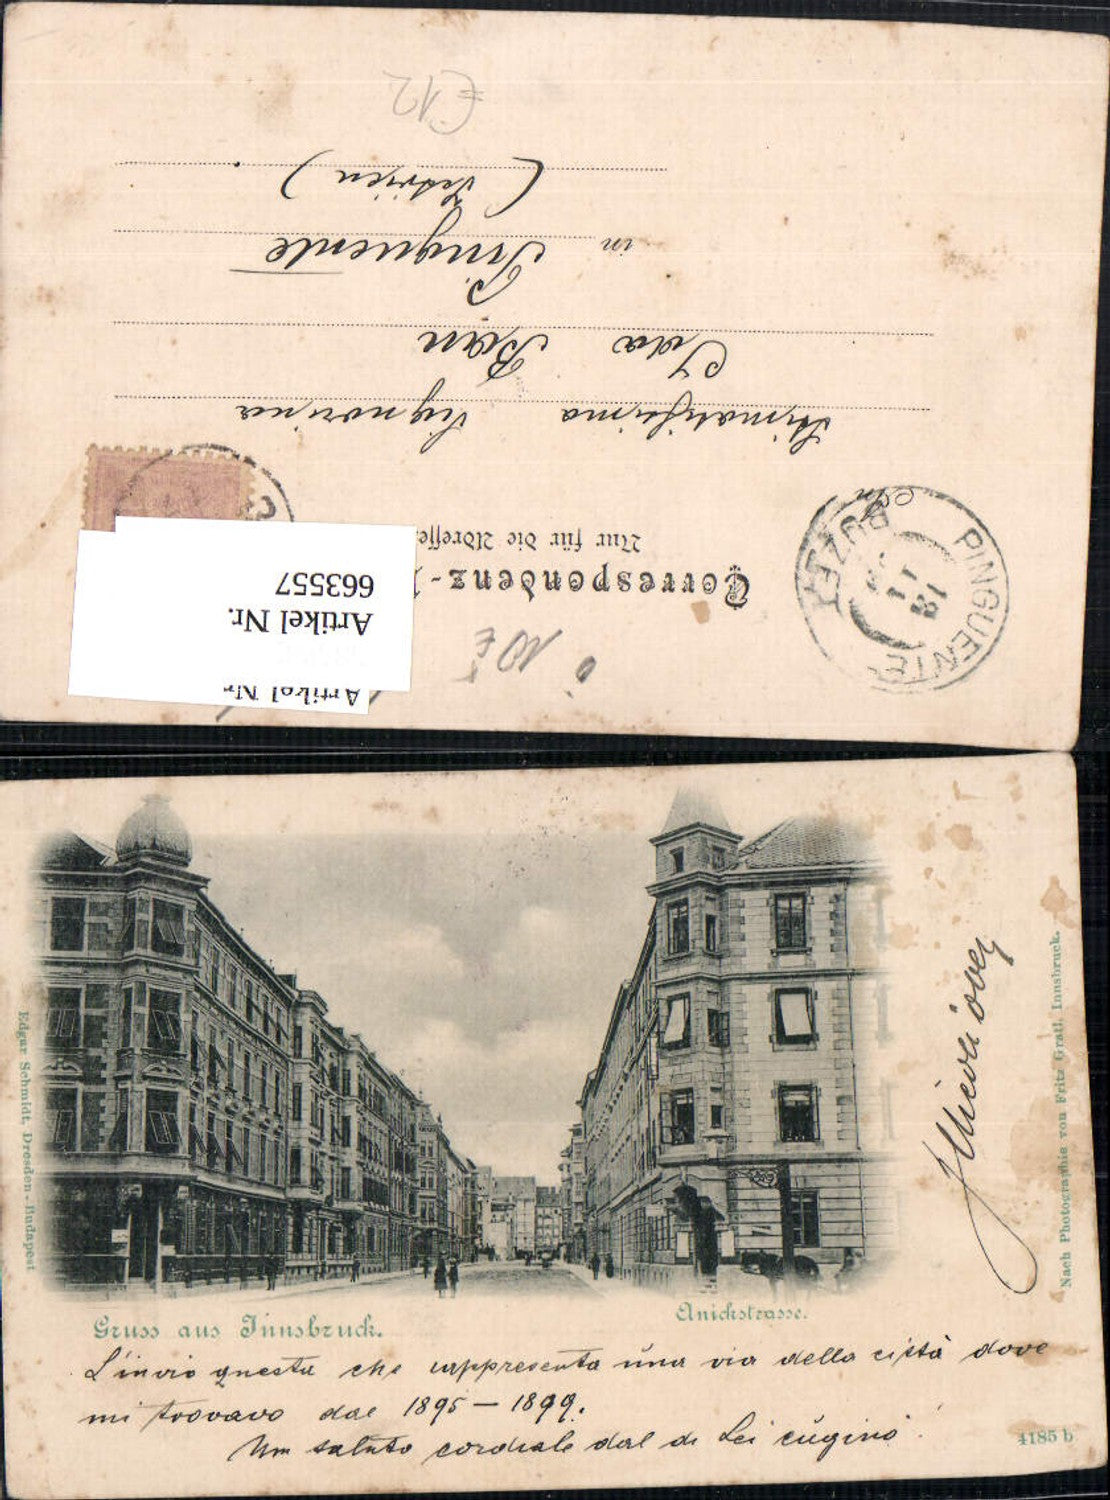 €12
( Istrien )
in Pinguente
Ida Ban
Stimatissima Signorina
An
Nur für die Adresse
Correspondenz-
PINGUENTE
BUZET
Artikel Nr.
663557
Artikel Nr
10 €
Gruss aus Innsbruck.
Anichstrasse.
L'invio questa che rappresenta una via della città dove
mi trovavo dal 1895 – 1899.
Un saluto cordiale dal di Lei cugino
4185 b
Edgar Schmidt, Dresden-Budapest
Nach Photographie von Fritz Gratl, Innsbruck.